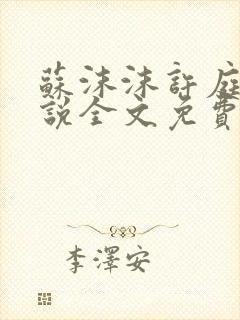 蘇沫沫許庭
說全文免費
李澤安